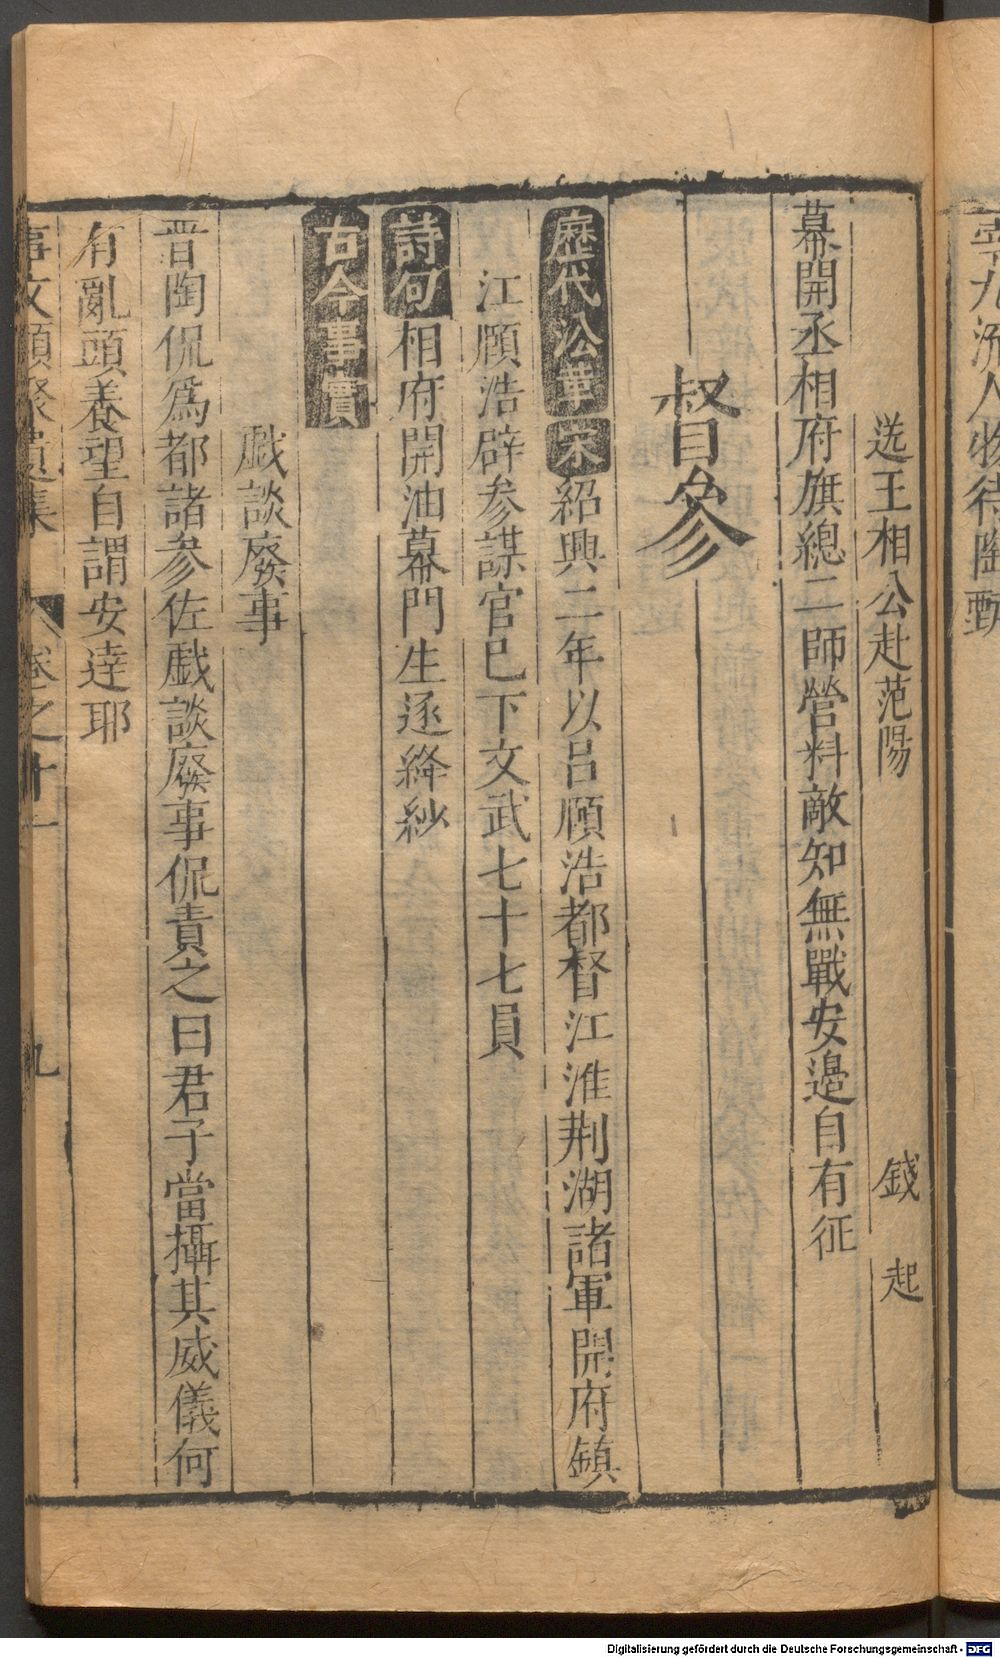 宰九流人物待陶甄
送王相公赴范陽 錢起
幕開丞相府旗總二師營料敵知無戰安邉自有征
督參
歷代沿革 宋 紹興二年以吕頥浩都督江淮荆湖諸軍開府鎮
江頥浩辟參謀官已下文武七十七員
詩句 相府開油幕門生逐絳紗
古今事實
戱談廢事
晋陶侃爲都諸參佐戱談廢事侃責之曰君子當攝其威儀何
有亂頭養望自謂安逹耶
事文類聚遺集 卷之十一 九
Digitalisierung gefördert durch die Deutsche Forschungsgemeinschaft - DFG